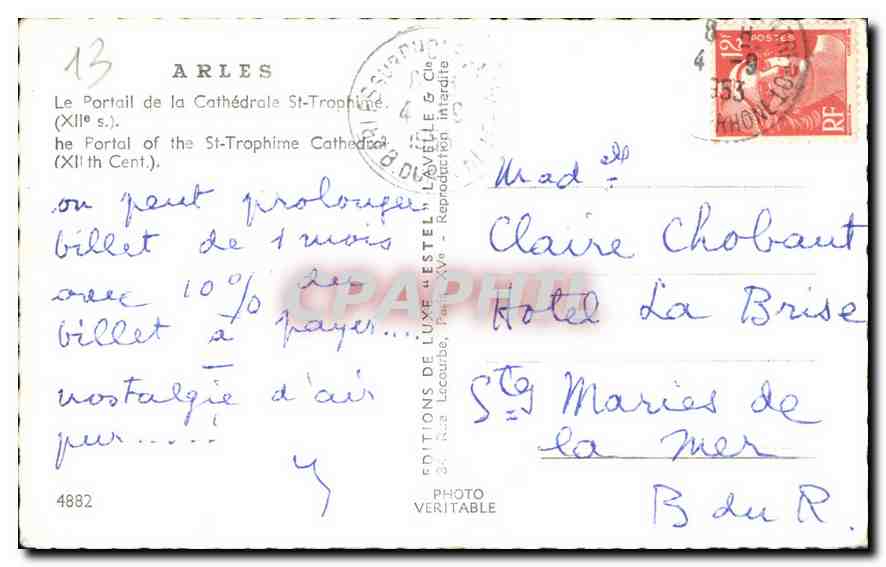 13
ARLES
Le Portail de la Cathédrale St-Trophime.
(XIIe s.).
he Portal of the St-Trophime Cathedral
(XIIth Cent.).
on peut prolonger
billet de 1 mois
avec 10% du
billet à payer....
nostalgie d'air
pur.....
4882
EDITIONS DE LUXE "ESTEL" LAVELLE & Cie
Rue Lecourbe, Paris XVe - Reproduction interdite
PHOTO
VERITABLE
CPAPHIL
12F
POSTES
RF
4 -9
1953
Mad elle
Claire Chobaut
Hotel La Brise
Stes Maries de
la mer
B du R.